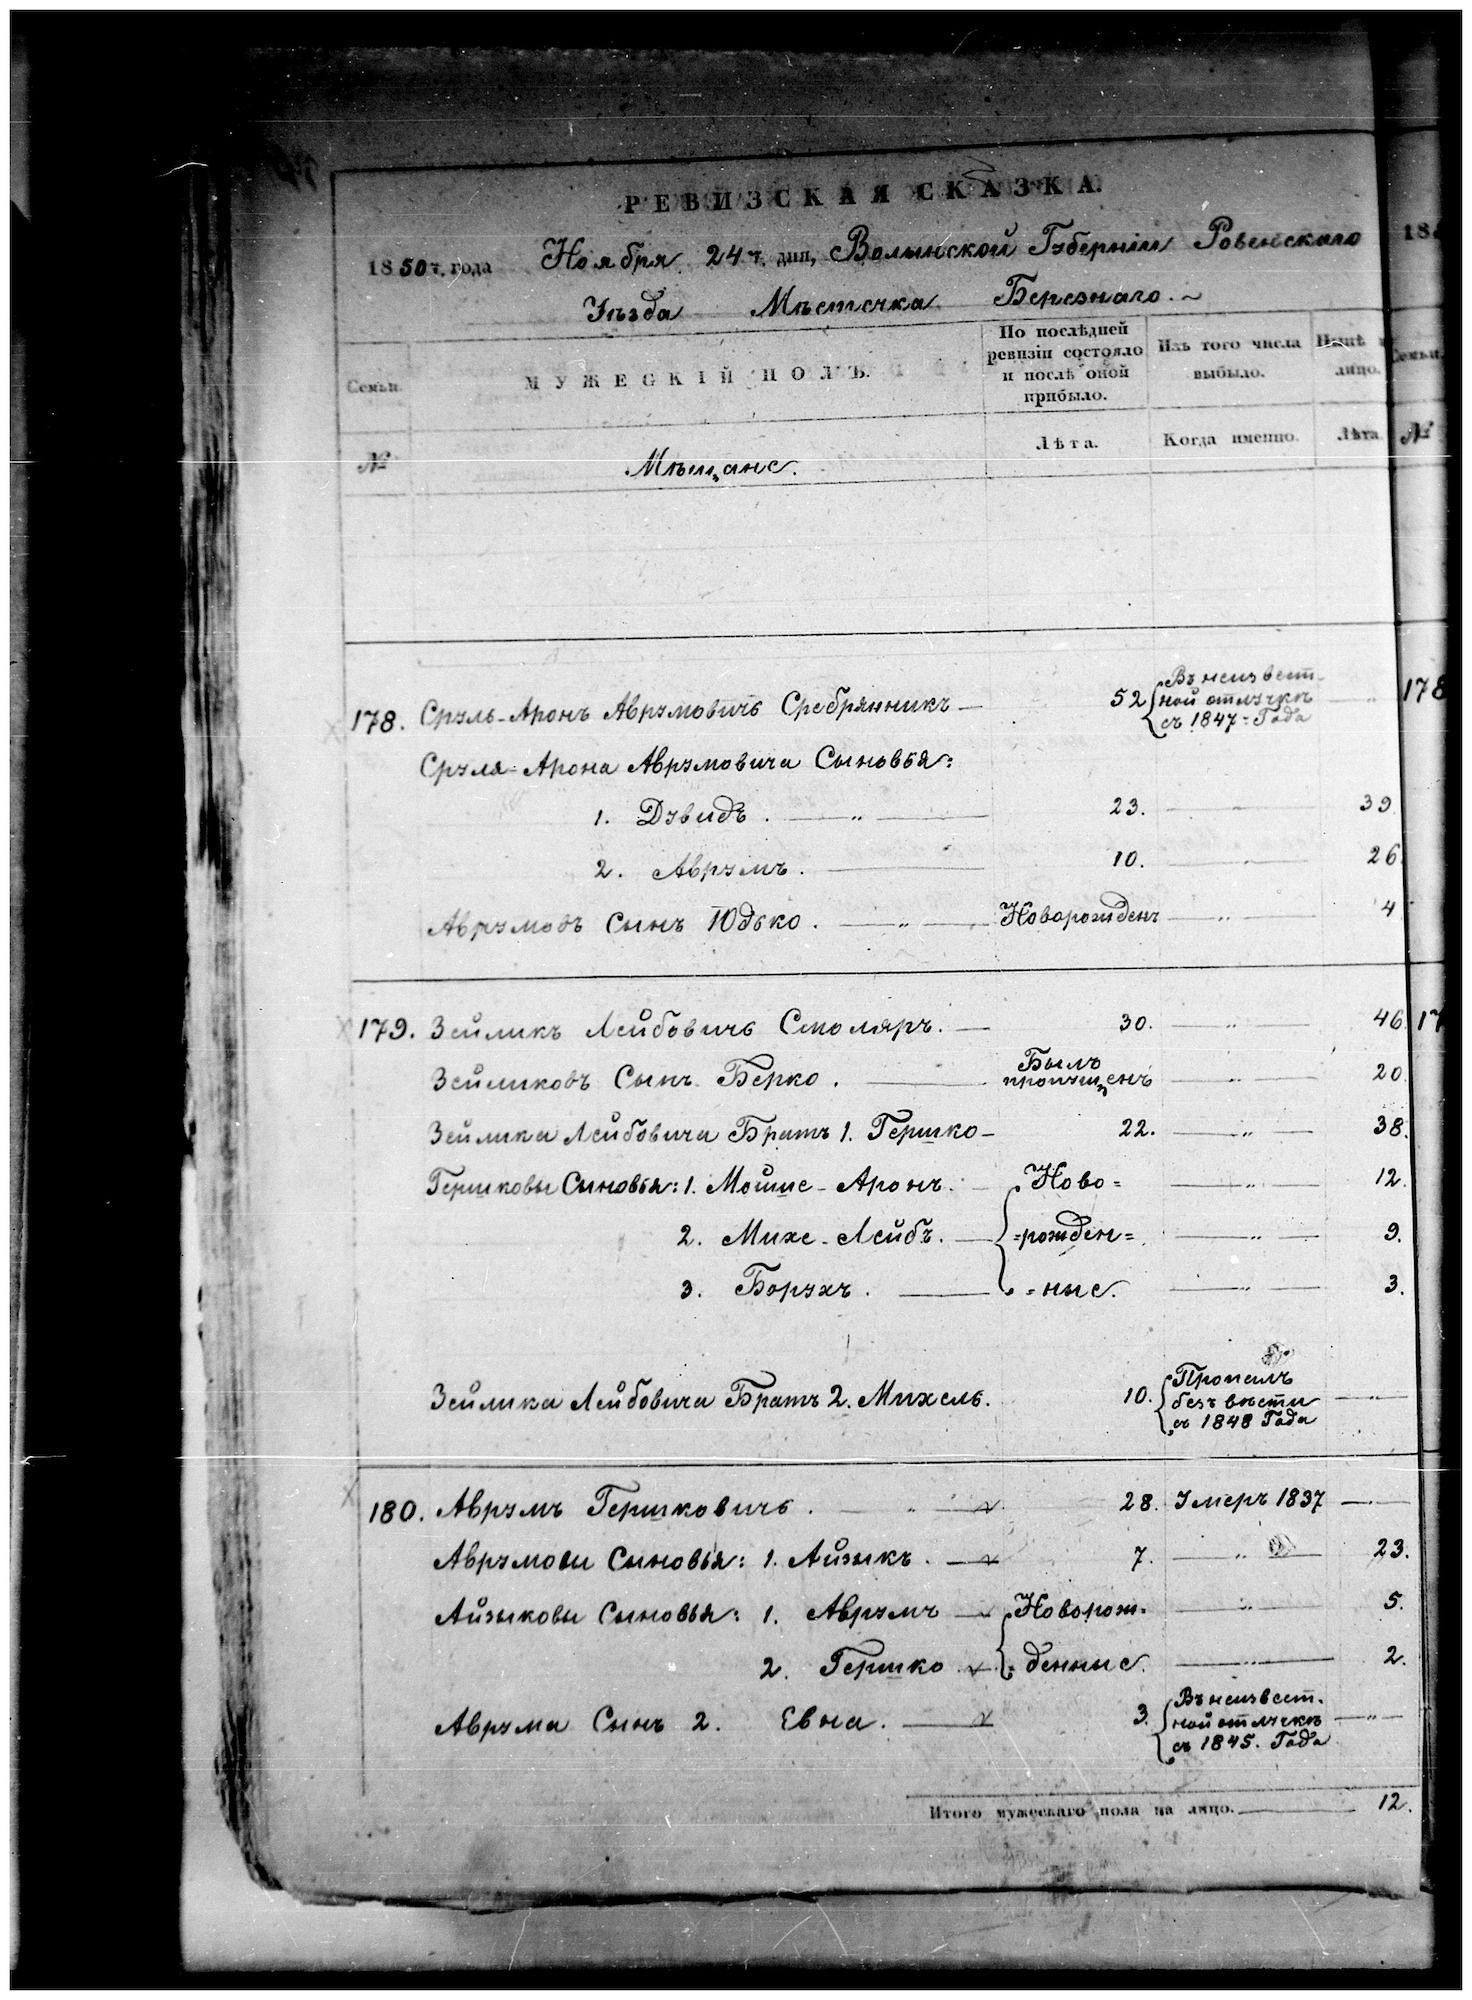 РЕВИЗСКАЯ СКАЗКА.
1850 г. года Ноября 24 г. дня, Волынской Губерніи Ровенскаго
Уѣзда Мѣстечка Березнаго.
Семьи. МУЖЕСКІЙ ПОЛЪ. По послѣдней ревизіи состояло и послѣ оной прибыло. Изъ того числа выбыло. Нынѣ лицо.
№ Мѣщане. Лѣта. Когда именно. Лѣта. №
178. Сруль-Аронъ Аврумовичь Сребрянникъ — 52 Въ неизвестной отлучкѣ съ 1847 = Года — 178
Сруля-Арона Аврумовича Сыновья:
1. Дувидъ. 23. 39
2. Аврумъ. 10. 26.
Аврумовъ Сынъ Юдько. Новорожденъ 4
179. Зейликъ Лейбовичь Смоляръ. — 30. 46. 17
Зейликовъ Сынъ Берко. Былъ пропущенъ 20.
Зейлика Лейбовича Братъ 1. Гершко — 22. 38.
Гершковы Сыновья: 1. Мойше-Аронъ. Ново= 12.
2. Михе-Лейбъ. =рожден= 9.
3. Борухъ. =ные. 3.
Зейлика Лейбовича Братъ 2. Михель. 10. Пропалъ безъ вѣсти съ 1848 Года
180. Аврумъ Гершковичь. 28. Умеръ 1837
Аврумовы Сыновья: 1. Айзыкъ. 7. 23.
Айзыковы Сыновья: 1. Аврумъ Новорож= 5.
2. Гершко =денные. 2.
Аврума Сынъ 2. Евна. 3. Въ неизвест.ной отлучкѣ съ 1845. Года
Итого мужескаго пола на лицо. 12.